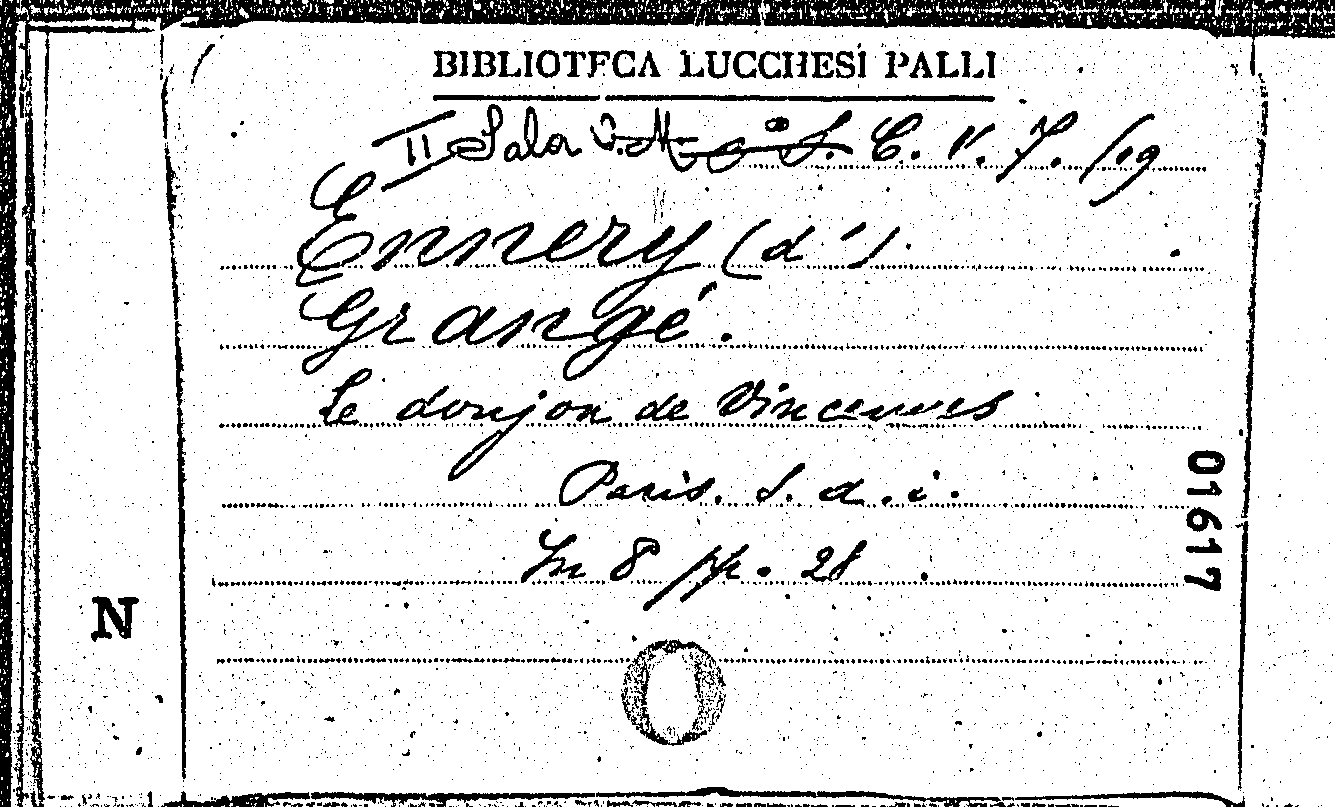 BIBLIOTECA LUCCHESI PALLI
II Sala C. V. 7. /19
Ennery (d')
Grangé.
Le donjon de Vincennes
Paris. S. d. i.
In 8 pp. 28.
01617
N